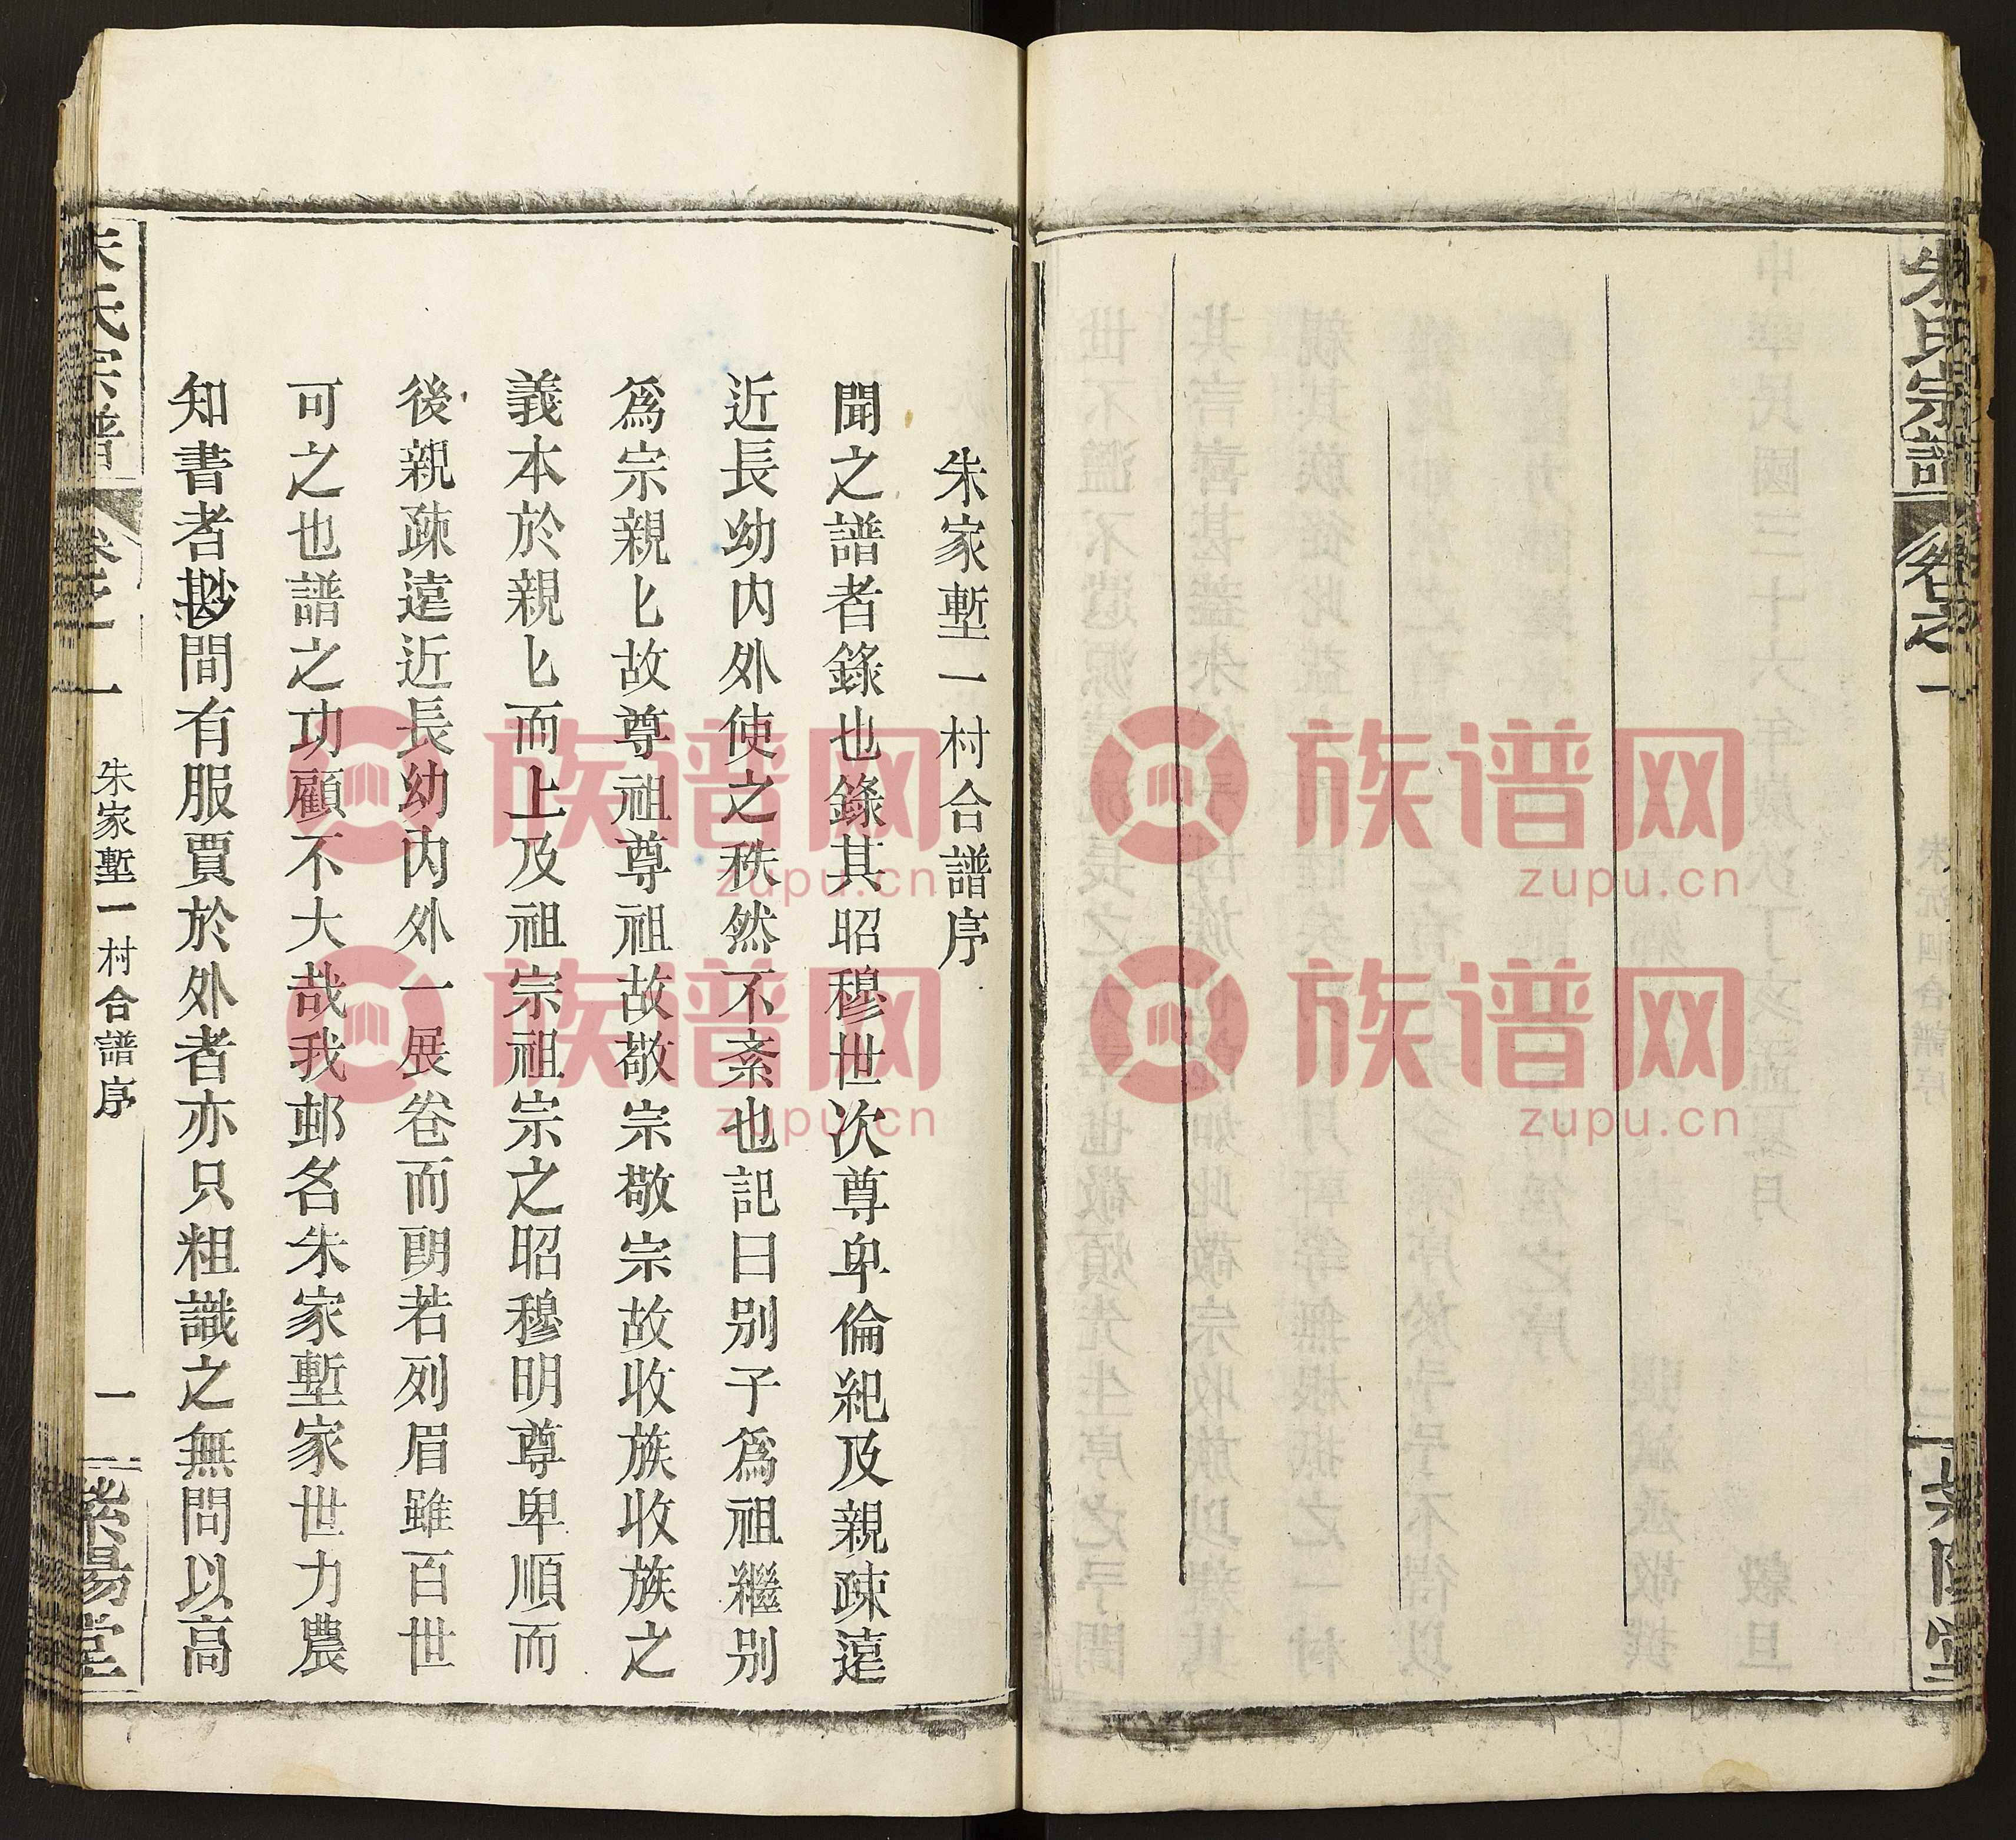 朱氏宗譜
卷之一
紫陽堂
朱家塹一村合譜序
聞之譜者錄也錄其昭穆世次尊卑倫紀及親疎遠
近長幼內外使之秩然不紊也記曰別子爲祖繼別
爲宗親匕故尊祖尊祖故敬宗敬宗故收族收族之
義本於親匕而上及祖宗祖宗之昭穆明尊卑順而
後親疎遠近長幼內外一展卷而朗若列眉雖百世
可之也譜之功顧不大哉我邨名朱家塹家世力農
知書者尠間有服賈於外者亦只粗識之無問以高
朱氏宗譜
卷之一
朱家塹一村合譜序
一
紫陽堂
族谱网
zupu.cn
族谱网
zupu.cn
族谱网
zupu.cn
族谱网
zupu.cn